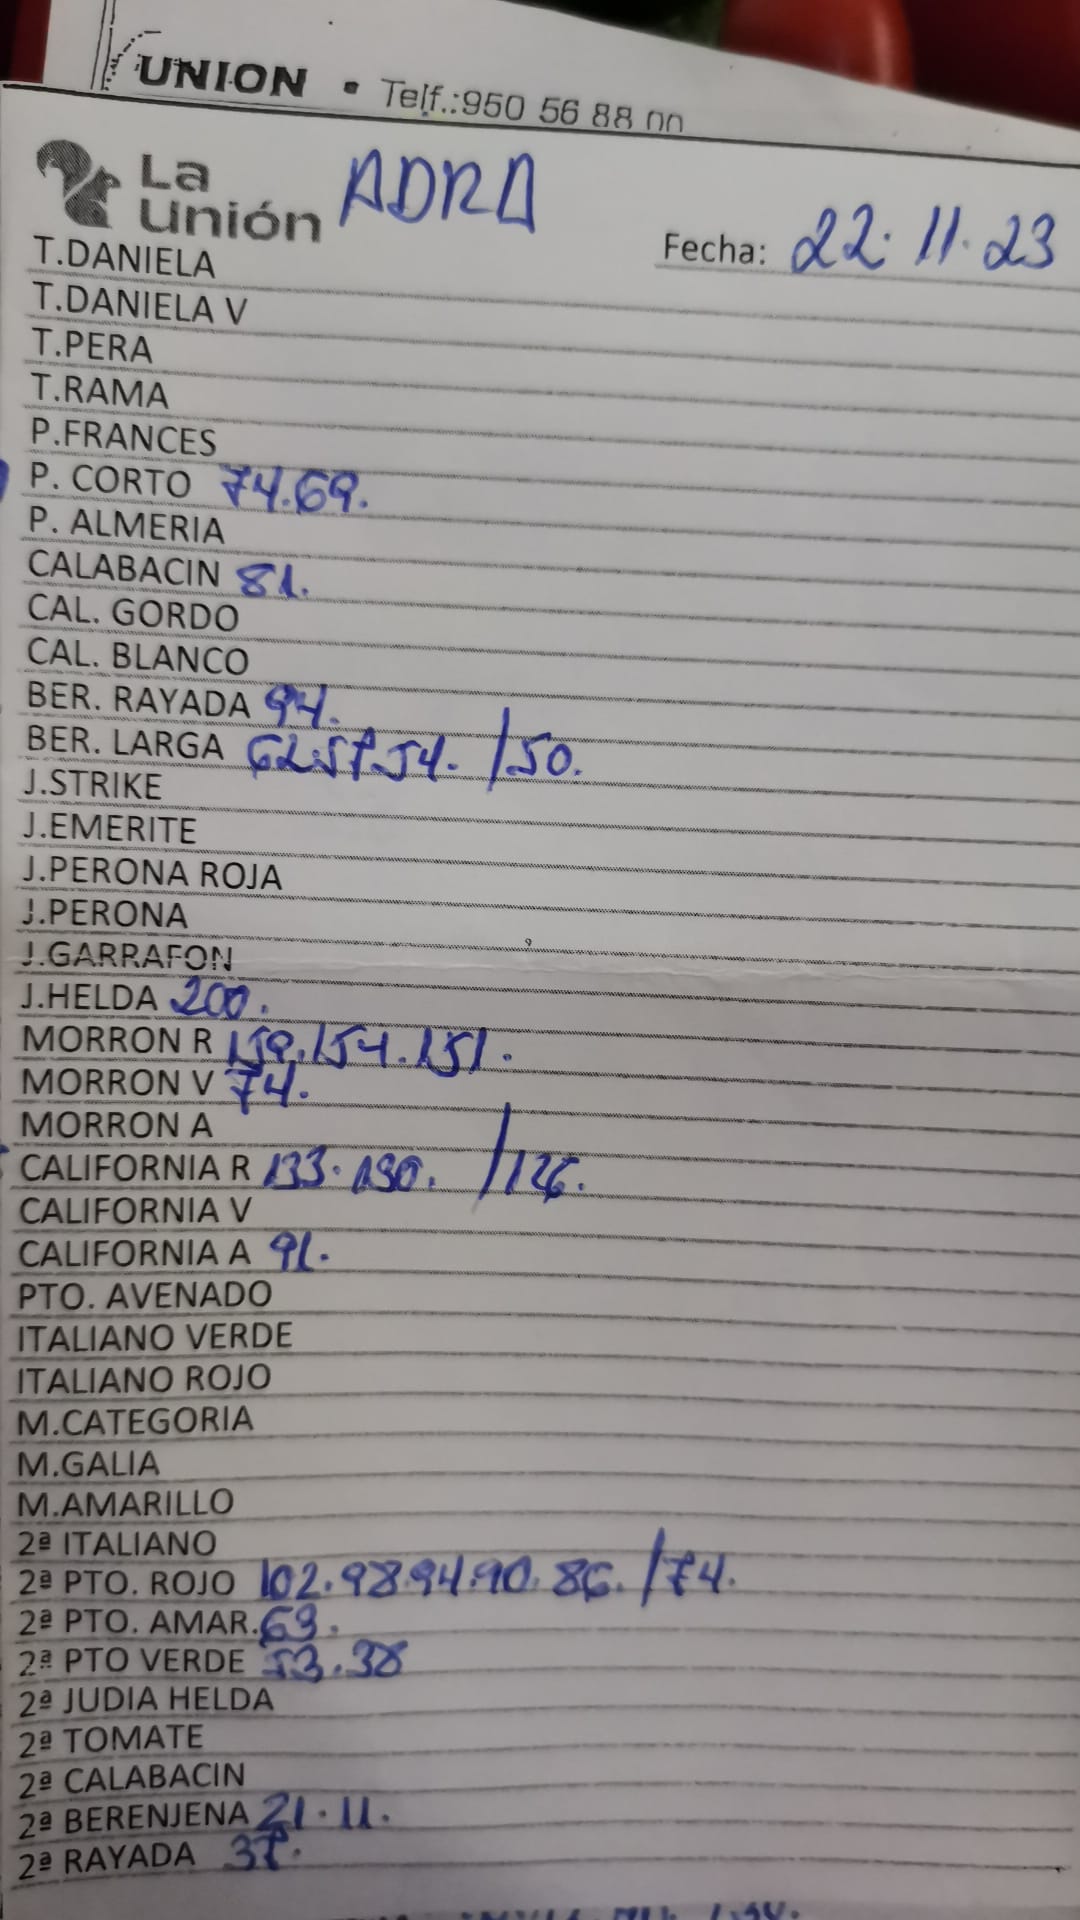 UNION • Telf.:950 56 88 00
La Unión ADRA
Fecha: 22.11.23
T.DANIELA
T.DANIELA V
T.PERA
T.RAMA
P.FRANCES
P. CORTO 74.69.
P. ALMERIA
CALABACIN 81.
CAL. GORDO
CAL. BLANCO
BER. RAYADA 94.
BER. LARGA 62.57.54. /50.
J.STRIKE
J.EMERITE
J.PERONA ROJA
J.PERONA
J.GARRAFON
J.HELDA 200.
MORRON R 159.154.151.
MORRON V 74.
MORRON A
CALIFORNIA R 133.130. /126.
CALIFORNIA V
CALIFORNIA A 91.
PTO. AVENADO
ITALIANO VERDE
ITALIANO ROJO
M.CATEGORIA
M.GALIA
M.AMARILLO
2ª ITALIANO
2ª PTO. ROJO 102.98.94.90.86. /74.
2ª PTO. AMAR. 63.
2ª PTO VERDE 53.38
2ª JUDIA HELDA
2ª TOMATE
2ª CALABACIN
2ª BERENJENA 21.11.
2ª RAYADA 37.